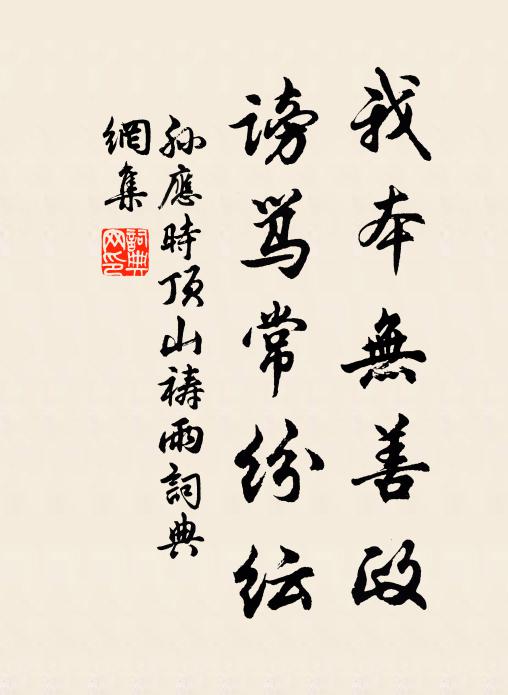 我本無善政
謗骂常纷纭
孫應時顶山祷雨詞典
網集
詞典
网印